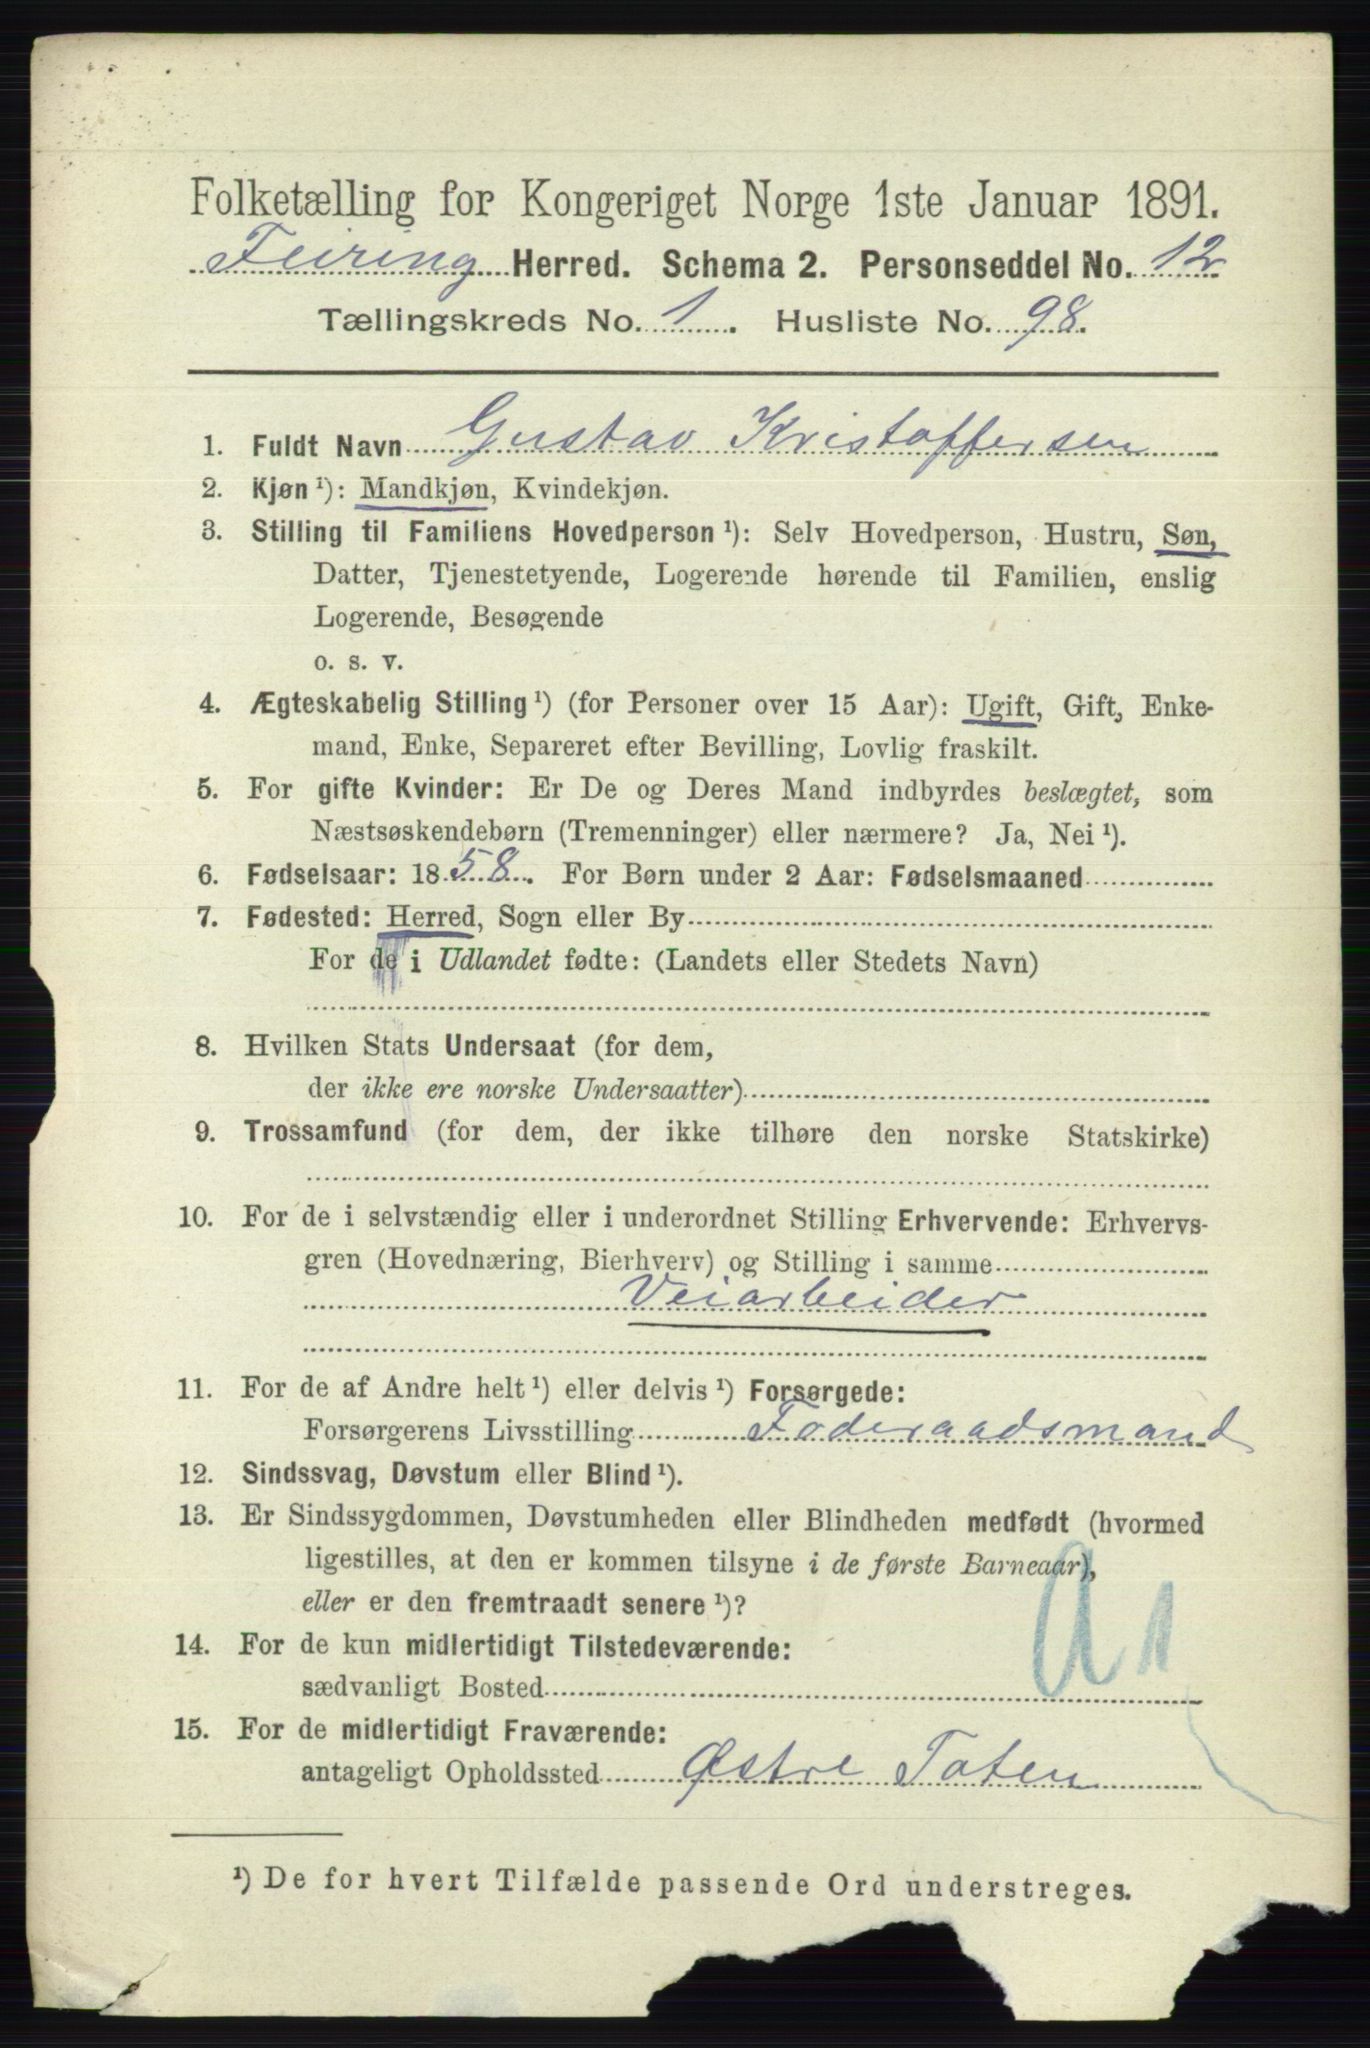 Folketælling for Kongeriget Norge 1ste Januar 1891.
Feiring Herred. Schema 2. Personseddel No. 12
Tællingskreds No. 1. Husliste No. 98.
1. Fuldt Navn Gustav Kristoffersen
2. Kjøn ¹): Mandkjøn, Kvindekjøn.
3. Stilling til Familiens Hovedperson ¹): Selv Hovedperson, Hustru, Søn,
Datter, Tjenestetyende, Logerende hørende til Familien, enslig
Logerende, Besøgende
o. s. v.
4. Ægteskabelig Stilling ¹) (for Personer over 15 Aar): Ugift, Gift, Enke-
mand, Enke, Separeret efter Bevilling, Lovlig fraskilt.
5. For gifte Kvinder: Er De og Deres Mand indbyrdes beslægtet, som
Næstsøskendebørn (Tremenninger) eller nærmere? Ja, Nei ¹).
6. Fødselsaar: 1858. For Børn under 2 Aar: Fødselsmaaned
7. Fødested: Herred, Sogn eller By
For de i Udlandet fødte: (Landets eller Stedets Navn)
8. Hvilken Stats Undersaat (for dem,
der ikke ere norske Undersaatter)
9. Trossamfund (for dem, der ikke tilhøre den norske Statskirke)
10. For de i selvstændig eller i underordnet Stilling Erhvervende: Erhvervs-
gren (Hovednæring, Bierhverv) og Stilling i samme
Veiarbeider
11. For de af Andre helt ¹) eller delvis ¹) Forsørgede:
Forsørgerens Livsstilling Føderaadsmand
12. Sindssvag, Døvstum eller Blind ¹).
13. Er Sindssygdommen, Døvstumheden eller Blindheden medfødt (hvormed
ligestilles, at den er kommen tilsyne i de første Barneaar),
eller er den fremtraadt senere ¹)?
14. For de kun midlertidigt Tilstedeværende:
sædvanligt Bosted
15. For de midlertidigt Fraværende:
antageligt Opholdssted Østre Toten
¹) De for hvert Tilfælde passende Ord understreges.